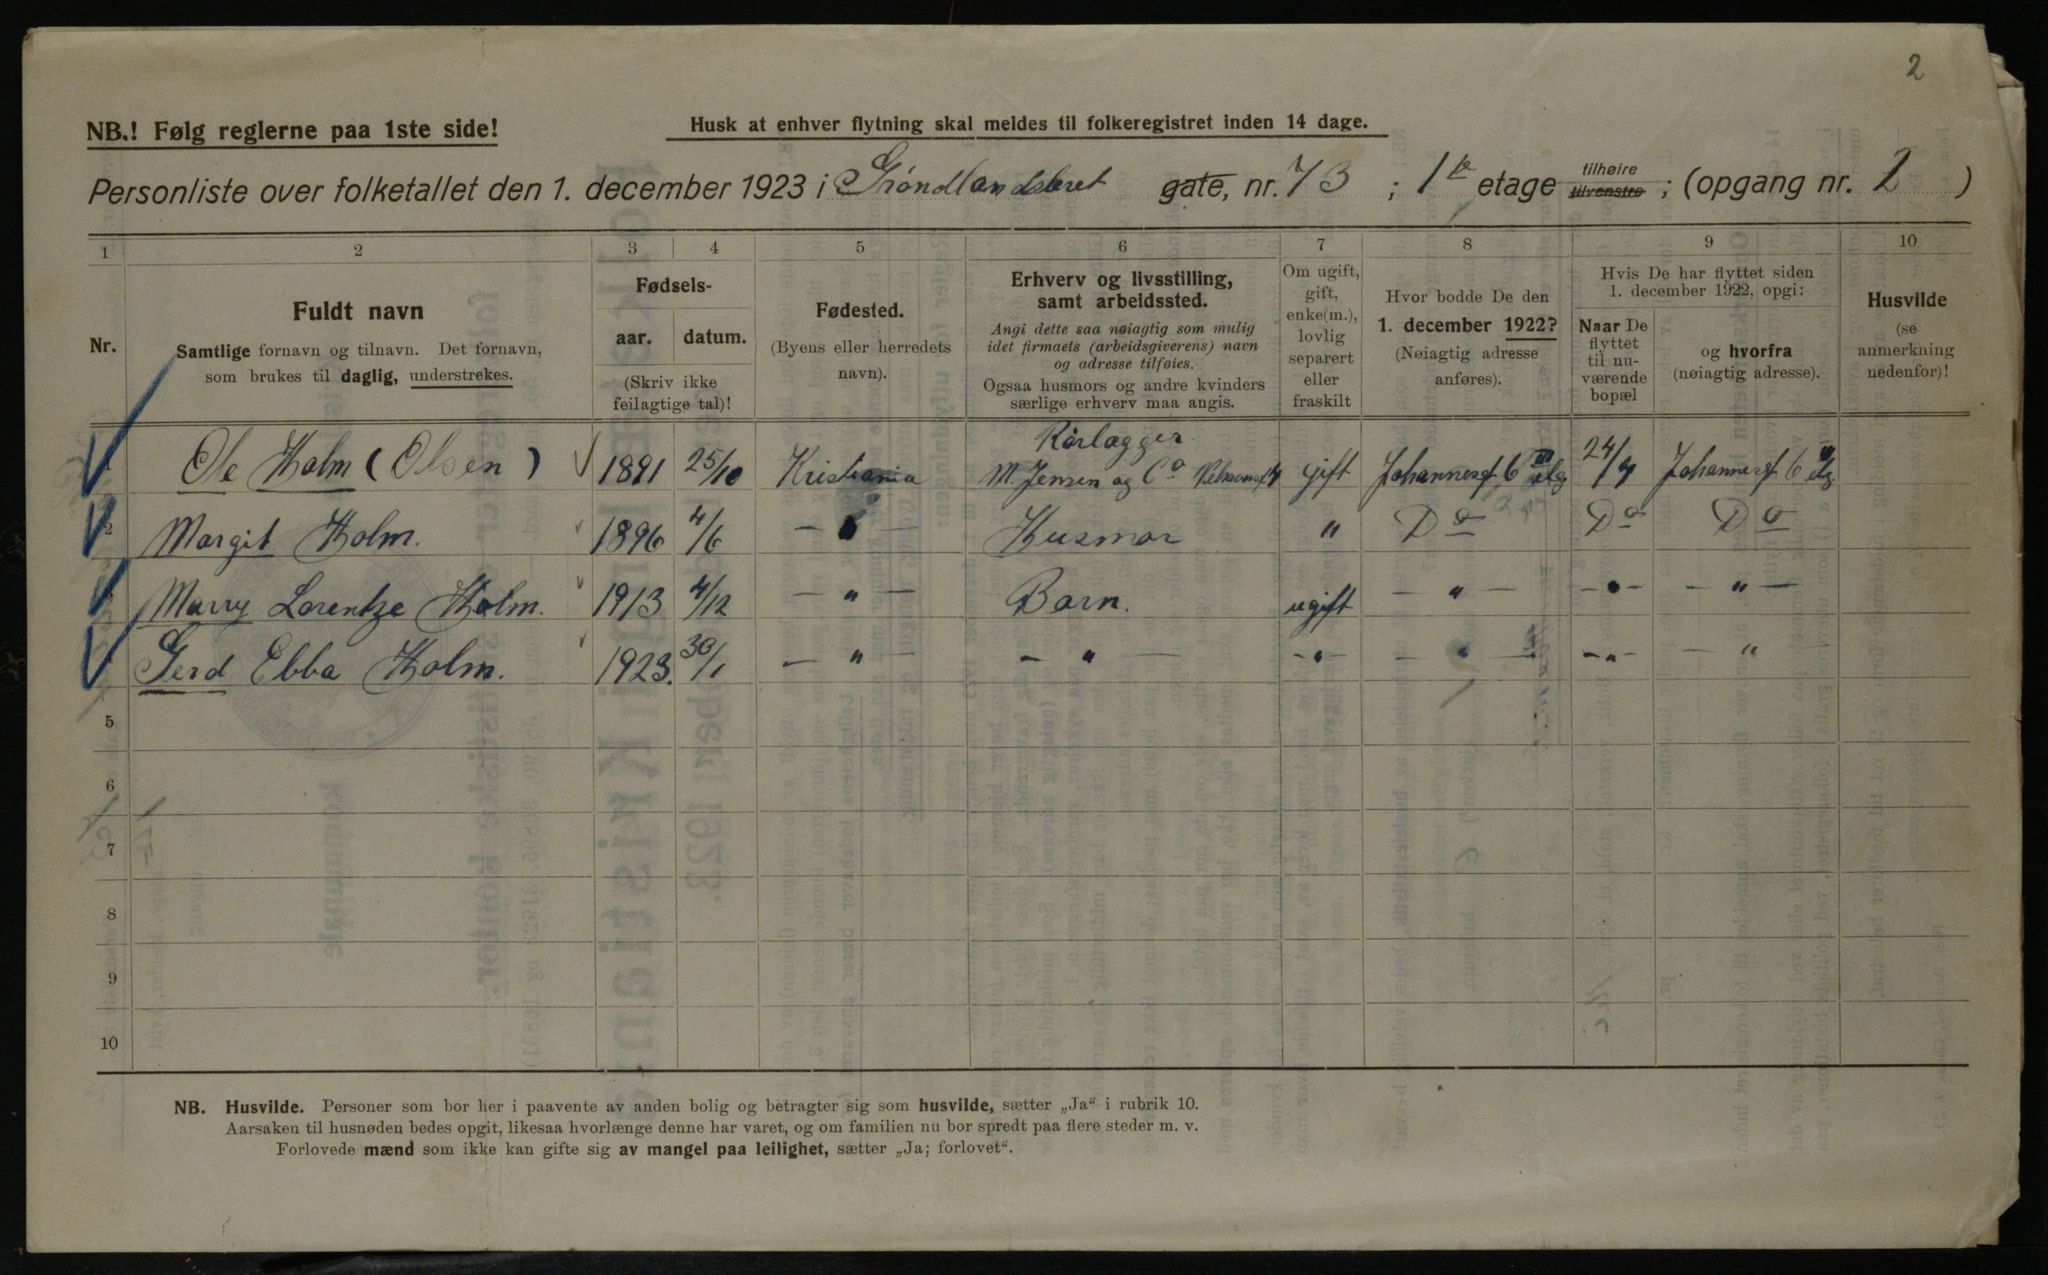 2
NB.! Følg reglerne paa 1ste side!
Husk at enhver flytning skal meldes til folkeregistret inden 14 dage.
Personliste over folketallet den 1. december 1923 i Grøndlandsleret gate, nr. 73 ; 1ste etage tilhøire tilvenstre ; (opgang nr. 2 )
1 2 3 4 5 6 7 8 9 10
Nr.
Fuldt navn
Samtlige fornavn og tilnavn. Det fornavn,
som brukes til daglig, understrekes.
Fødsels-
aar. datum.
(Skriv ikke
feilagtige tal)!
Fødested.
(Byens eller herredets
navn).
Erhverv og livsstilling,
samt arbeidssted.
Angi dette saa nøiagtig som mulig
idet firmaets (arbeidsgiverens) navn
og adresse tilføies.
Ogsaa husmors og andre kvinders
særlige erhverv maa angis.
Om ugift,
gift,
enke(m.),
lovlig
separert
eller
fraskilt
Hvor bodde De den
1. december 1922?
(Nøiagtig adresse
anføres).
Hvis De har flyttet siden
1. december 1922, opgi:
Naar De
flyttet
til nu-
værende
bopæl
og hvorfra
(nøiagtig adresse).
Husvilde
(se
anmerkning
nedenfor)!
Rørlægger
1 Ole Holm (Olsen) 1891 25/10 Kristiania M. Jensen og Co gift Johannesgt 6 III etg 24/9 Johannesgt 6 etg
2 Margit Holm. 1896 4/6 — " — Husmor " Do Do Do
3 Marry Lorentze Holm. 1913 4/12 — " — Barn. ugift — " — — " — — " —
4 Gerd Ebba Holm. 1923. 30/1 — " — — " — — " — — " — — " — — "
5
6
7
8
9
10
NB. Husvilde. Personer som bor her i paavente av anden bolig og betragter sig som husvilde, sætter „Ja“ i rubrik 10.
Aarsaken til husnøden bedes opgit, likesaa hvorlænge denne har varet, og om familien nu bor spredt paa flere steder m. v.
Forlovede mænd som ikke kan gifte sig av mangel paa leilighet, sætter „Ja; forlovet“.